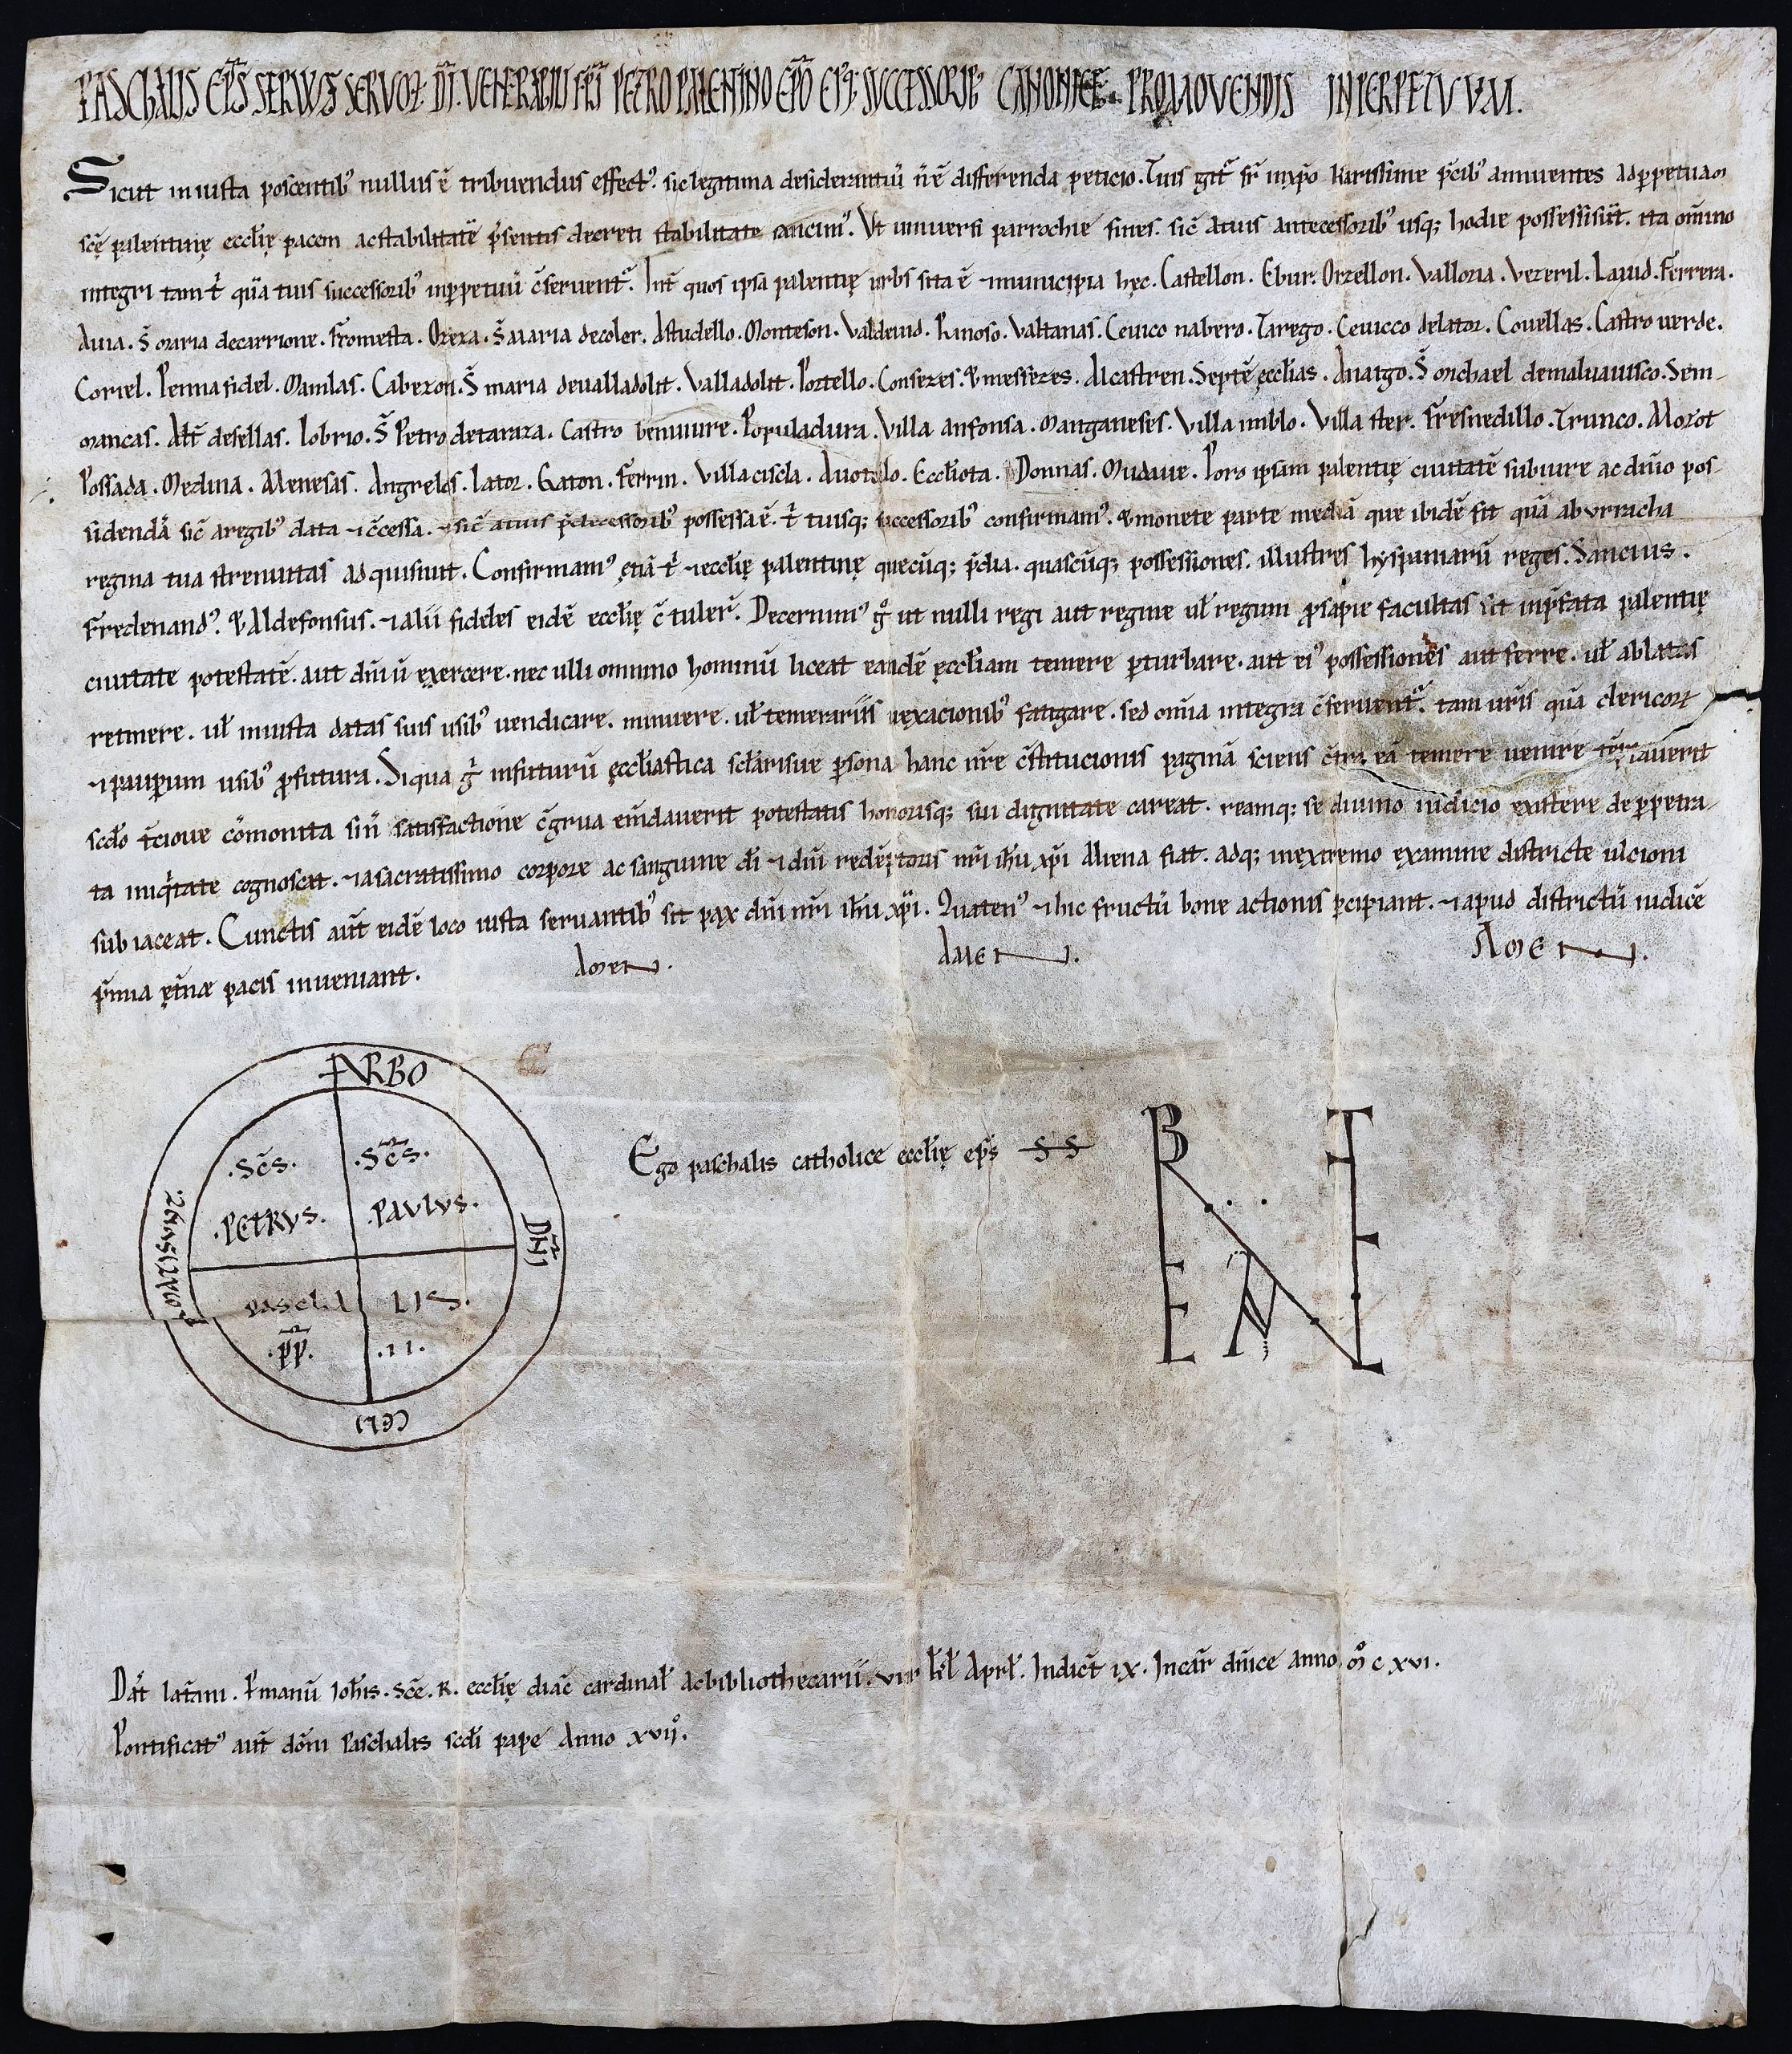 PASCHALIS EP̄S SERVUS SERVOꝜ DĪ. VENERABILI FRĪ PETRO PALENTINO EPŌ EIꝰQ; SUCCESSORIBꝰ CANONICE PROMOVENDIS INPERPETVVM.
Sicut iniusta poscentibꝰ nullus ē tribuendus effectꝰ. sic legitima desiderantiū n̄ ē differenda peticio. Tuis gitᷣ fr̄ inxp̄o karissime p̄cibꝰ annuentes adꝑpetuam
sc̄ę palentinę ecclīę pacem acstabilitatē p̄sentis decreti stabilitate sancimꝰ. Ut universi parrochie fines. sic̄ atuis antecessoribꝰ usq; hodie possessi sūt. ita om̄ino
integri tam t̄ quā tuis successoribꝰ inꝑpetuū c̄serventᷣ. Int̄ quos ipsa palentię urbs sita ē ⁊municipia hęc. Castellon. Ebur. Orzellon. Valloria. Vezeril. Lavid. Ferrera.
Avia. S̄ maria decarrione. Fromesta. Oxexa. S̄ Maria decoler. Astudello. Monteson. Valdeuid. Rinoso. Valtanas. Cevico nabero. Tarego. Cevicco delator. Covellas. Castro uerde.
Coriel. Penna fidel. Mamlas. Cabezon. S̄ maria deualladolit. Valladolit. Portello. Consezes. & messezes. Alcastren. Septē ęcclīas. Anaigo. S̄ Michael demaluavisco. Sem-
mancas. Alt̄ desellas. Iobrio. S̄ Petro detaraza. Castro benivivre. Populadura. Villa anfonsa. Manganeses. Villa imblo. Villa ster. Fresnedillo. Trunco. Morot
Possada. Medina. Menesas. Angrelos. Lator. Gaton. Ferrin. Villa ciscla. Auotello. Ecclīota. Donnas. Mudaue. Poro ipsam palentię civitatē subiure ac dn̄io pos-
sidendā sic̄ aregibꝰ data ⁊c̄cessa. ⁊sic̄ atuis p̄decessoribꝰ possessa ē. t̄ tuisq; successoribꝰ confirmamꝰ. & monete parte mediā que ibidē fit quā ab vrracha
regina tua strenuitas adquisiuit. Confirmamꝰ ętiā t̄ ⁊ecclīę palentinę quecūq; p̄dia. quascūq; possessiones. illustres hyspaniarū reges. Sancius.
Fredenandꝰ. & Aldefonsus. ⁊alii fideles eidē ecclīę c̄tuler̄. Decernimꝰ g° ut nulli regi aut regine ul̄ regum ꝓsapie facultas sit inp̄fata palentię
civitate potestatē. aut dn̄iū exercere. nec ulli omnino hominū liceat eandē ęcclīam temere ꝑturbare. aut eiꝰ possessiones aut ferre. ul̄ ablatas
retinere. ul̄ iniusta datas suis usibꝰ vendicare. minuere. ul̄ temerariis uexacionibꝰ fatigare. sed om̄ia integra c̄serventᷣ. tam ur̄is quā clericoꝝ
⁊pauꝑum usibꝰ ꝓfutura. Siqua gᷣ infuturū ęcclīastica scl̄arisue ꝑsona hanc nr̄e c̄stitucionis paginā sciens c̄tra eā temere uenire tēptaverit
scd̄o t̄ciove cōmonita sin̄ satisfactione c̄grua em̄daverit potestatis honorisq; sui dignitate careat. reamq; se divino iudicio existere deꝑpetra-
ta iniqᷓtate cognoscat. ⁊asacratissimo corpore ac sanguine dī ⁊dn̄i redēptoris nr̄i ih̄u xp̄i aliena fiat. adq; inextremo examine districte ulcioni
subiaceat. Cunctis aut̄ eidē loco iusta servantibꝰ sit pax dn̄i nr̄i ih̄u xp̄i. Quatenꝰ ⁊hic fructū bone actionis ꝑcipiant. ⁊apud districtū iudicē
p̄mia ęt̄nae pacis inveniant. AmeN. AmeN. AmeN.
VRBO
DN̄I
CELI
.SC̄S. .SC̄S.
.PETRVS. .PAVLVS.
PASCHA LIS.
.P̄P̄. .II.
Ego paschalis catholice ecclīę ep̄s SS
Dat̄ lat̄ani. ꝑmanū Ioh̄is. Sc̄e. R. ecclīę diac̄ cardinal̄ acbibliothecarii. VII kl̄ Aprl̄. Indict̄ IX. Incar̄ dn̄ice anno M° C XVI.
Pontificatꝰ aut̄ dōni Paschalis scd̄i pape Anno XVII°.